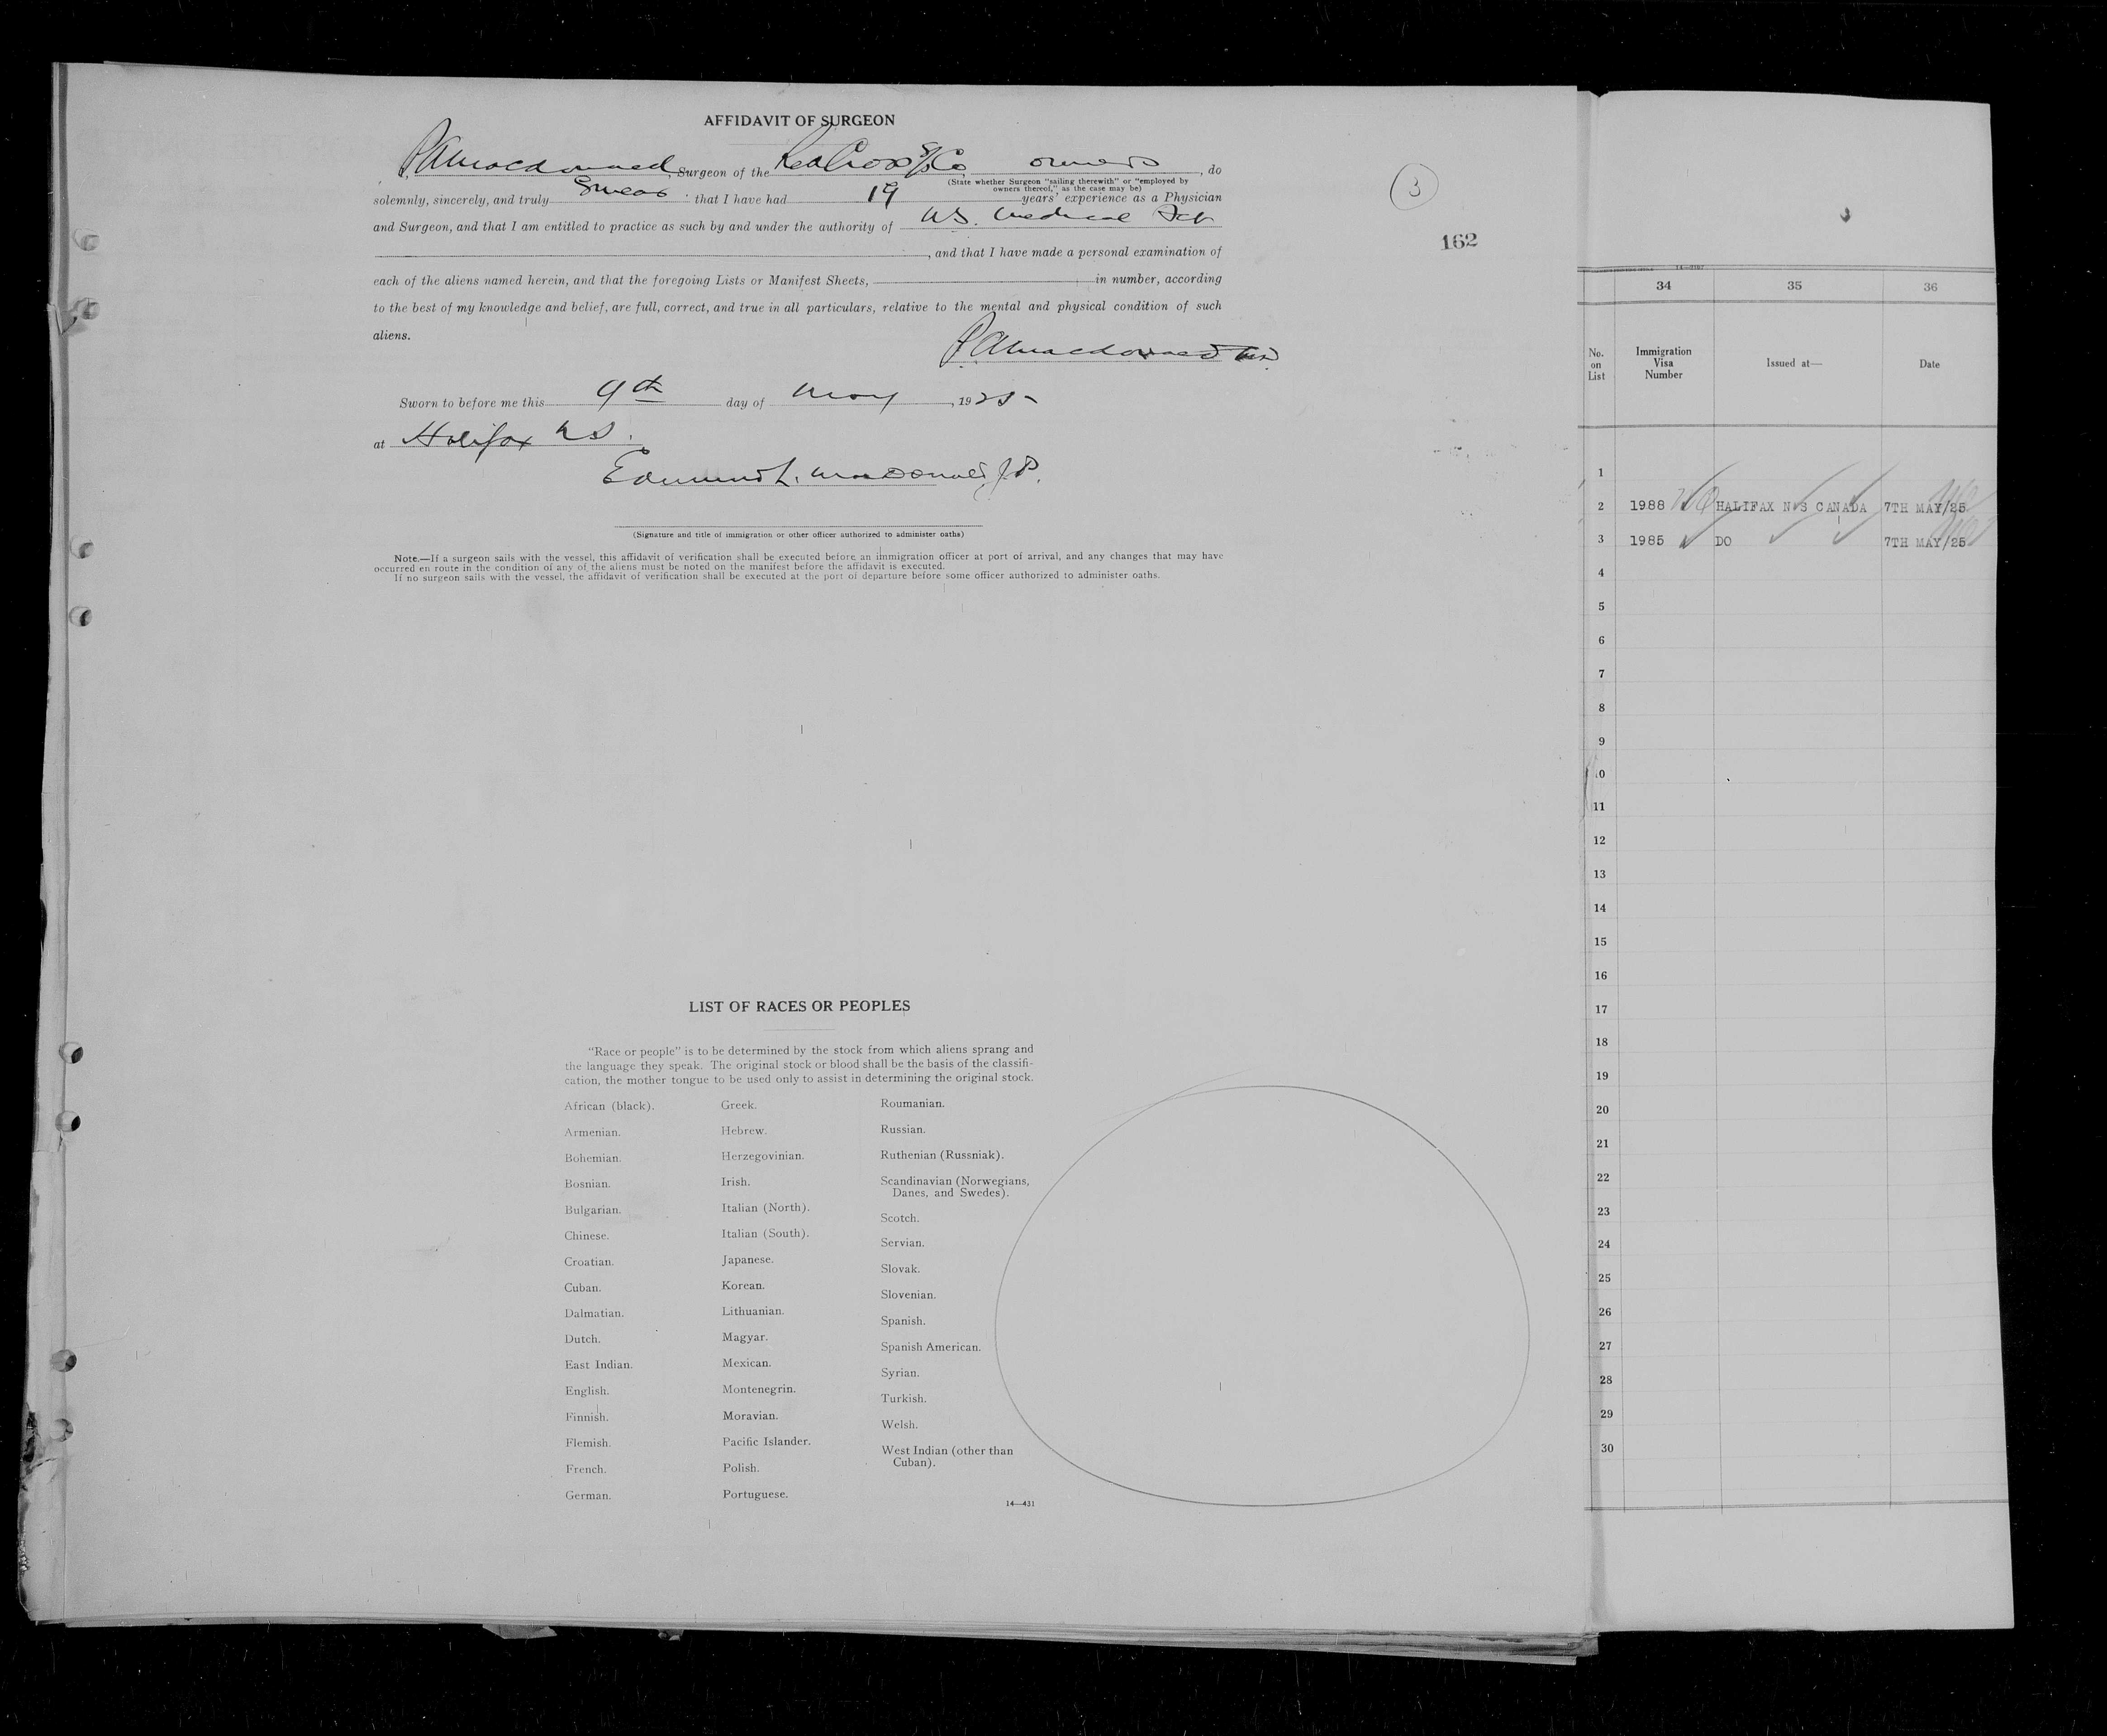 AFFIDAVIT OF SURGEON
P.A. Macdonald, Surgeon of the Red Cross S/S Co owners, do
(State whether Surgeon "sailing therewith" or "employed by
owners thereof," as the case may be)
solemnly, sincerely, and truly swear that I have had 19 years' experience as a Physician
and Surgeon, and that I am entitled to practice as such by and under the authority of N.S. Medical
, and that I have made a personal examination of
each of the aliens named herein, and that the foregoing Lists or Manifest Sheets, in number, according
to the best of my knowledge and belief, are full, correct, and true in all particulars, relative to the mental and physical condition of such
aliens.
P.A. Macdonald M.D.
Sworn to before me this 9th day of May, 1925
at Halifax N.S.
Edmund L. MacDonald J.P.
(Signature and title of immigration or other officer authorized to administer oaths)
Note.—If a surgeon sails with the vessel, this affidavit of verification shall be executed before an immigration officer at port of arrival, and any changes that may have
occurred en route in the condition of any of the aliens must be noted on the manifest before the affidavit is executed.
If no surgeon sails with the vessel, the affidavit of verification shall be executed at the port of departure before some officer authorized to administer oaths.
3
162
LIST OF RACES OR PEOPLES
"Race or people" is to be determined by the stock from which aliens sprang and
the language they speak. The original stock or blood shall be the basis of the classifi-
cation, the mother tongue to be used only to assist in determining the original stock.
African (black).
Armenian.
Bohemian.
Bosnian.
Bulgarian.
Chinese.
Croatian.
Cuban.
Dalmatian.
Dutch.
East Indian.
English.
Finnish.
Flemish.
French.
German.
Greek.
Hebrew.
Herzegovinian.
Irish.
Italian (North).
Italian (South).
Japanese.
Korean.
Lithuanian.
Magyar.
Mexican.
Montenegrin.
Moravian.
Pacific Islander.
Polish.
Portuguese.
Roumanian.
Russian.
Ruthenian (Russniak).
Scandinavian (Norwegians,
Danes, and Swedes).
Scotch.
Servian.
Slovak.
Slovenian.
Spanish.
Spanish American.
Syrian.
Turkish.
Welsh.
West Indian (other than
Cuban).
14—431
34 35 36
No.
on
List
Immigration
Visa
Number
Issued at—
Date
1
2 1988 HALIFAX N S CANADA 7TH MAY/25
3 1985 DO 7TH MAY/25
4
5
6
7
8
9
10
11
12
13
14
15
16
17
18
19
20
21
22
23
24
25
26
27
28
29
30